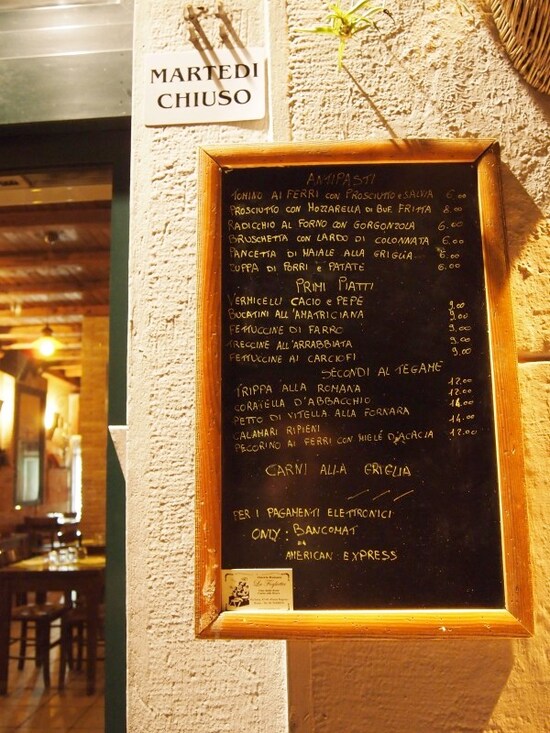 MARTEDI
CHIUSO
ANTIPASTI
TOMINO AI FERRI CON PROSCIUTTO e SALVIA 6.00
PROSCIUTTO CON MOZZARELLA DI BUF. FRITTA 8.00
RADICCHIO AL FORNO CON GORGONZOLA 6.00
BRUSCHETTA CON LARDO DI COLONNATA 6.00
PANCETTA DI MAIALE ALLA GRIGLIA 6.00
ZUPPA DI PORRI e PATATE 6.00
PRIMI PIATTI
VERMICELLI CACIO e PEPE 9.00
BUCATINI ALL'AMATRICIANA 9.00
FETTUCCINE DI FARRO 9.00
TRECCINE ALL'ARRABBIATA 9.00
FETTUCCINE AI CARCIOFI 9.00
SECONDI AL TEGAME
TRIPPA ALLA ROMANA 12.00
CORATELLA D'ABBACCHIO 12.00
PETTO DI VITELLA ALLA FORNARA 14.00
CALAMARI RIPIENI 14.00
PECORINO AI FERRI CON MIELE D'ACACIA 12.00
CARNI ALLA GRIGLIA
PER I PAGAMENTI ELETTRONICI
ONLY: BANCOMAT
AMERICAN EXPRESS